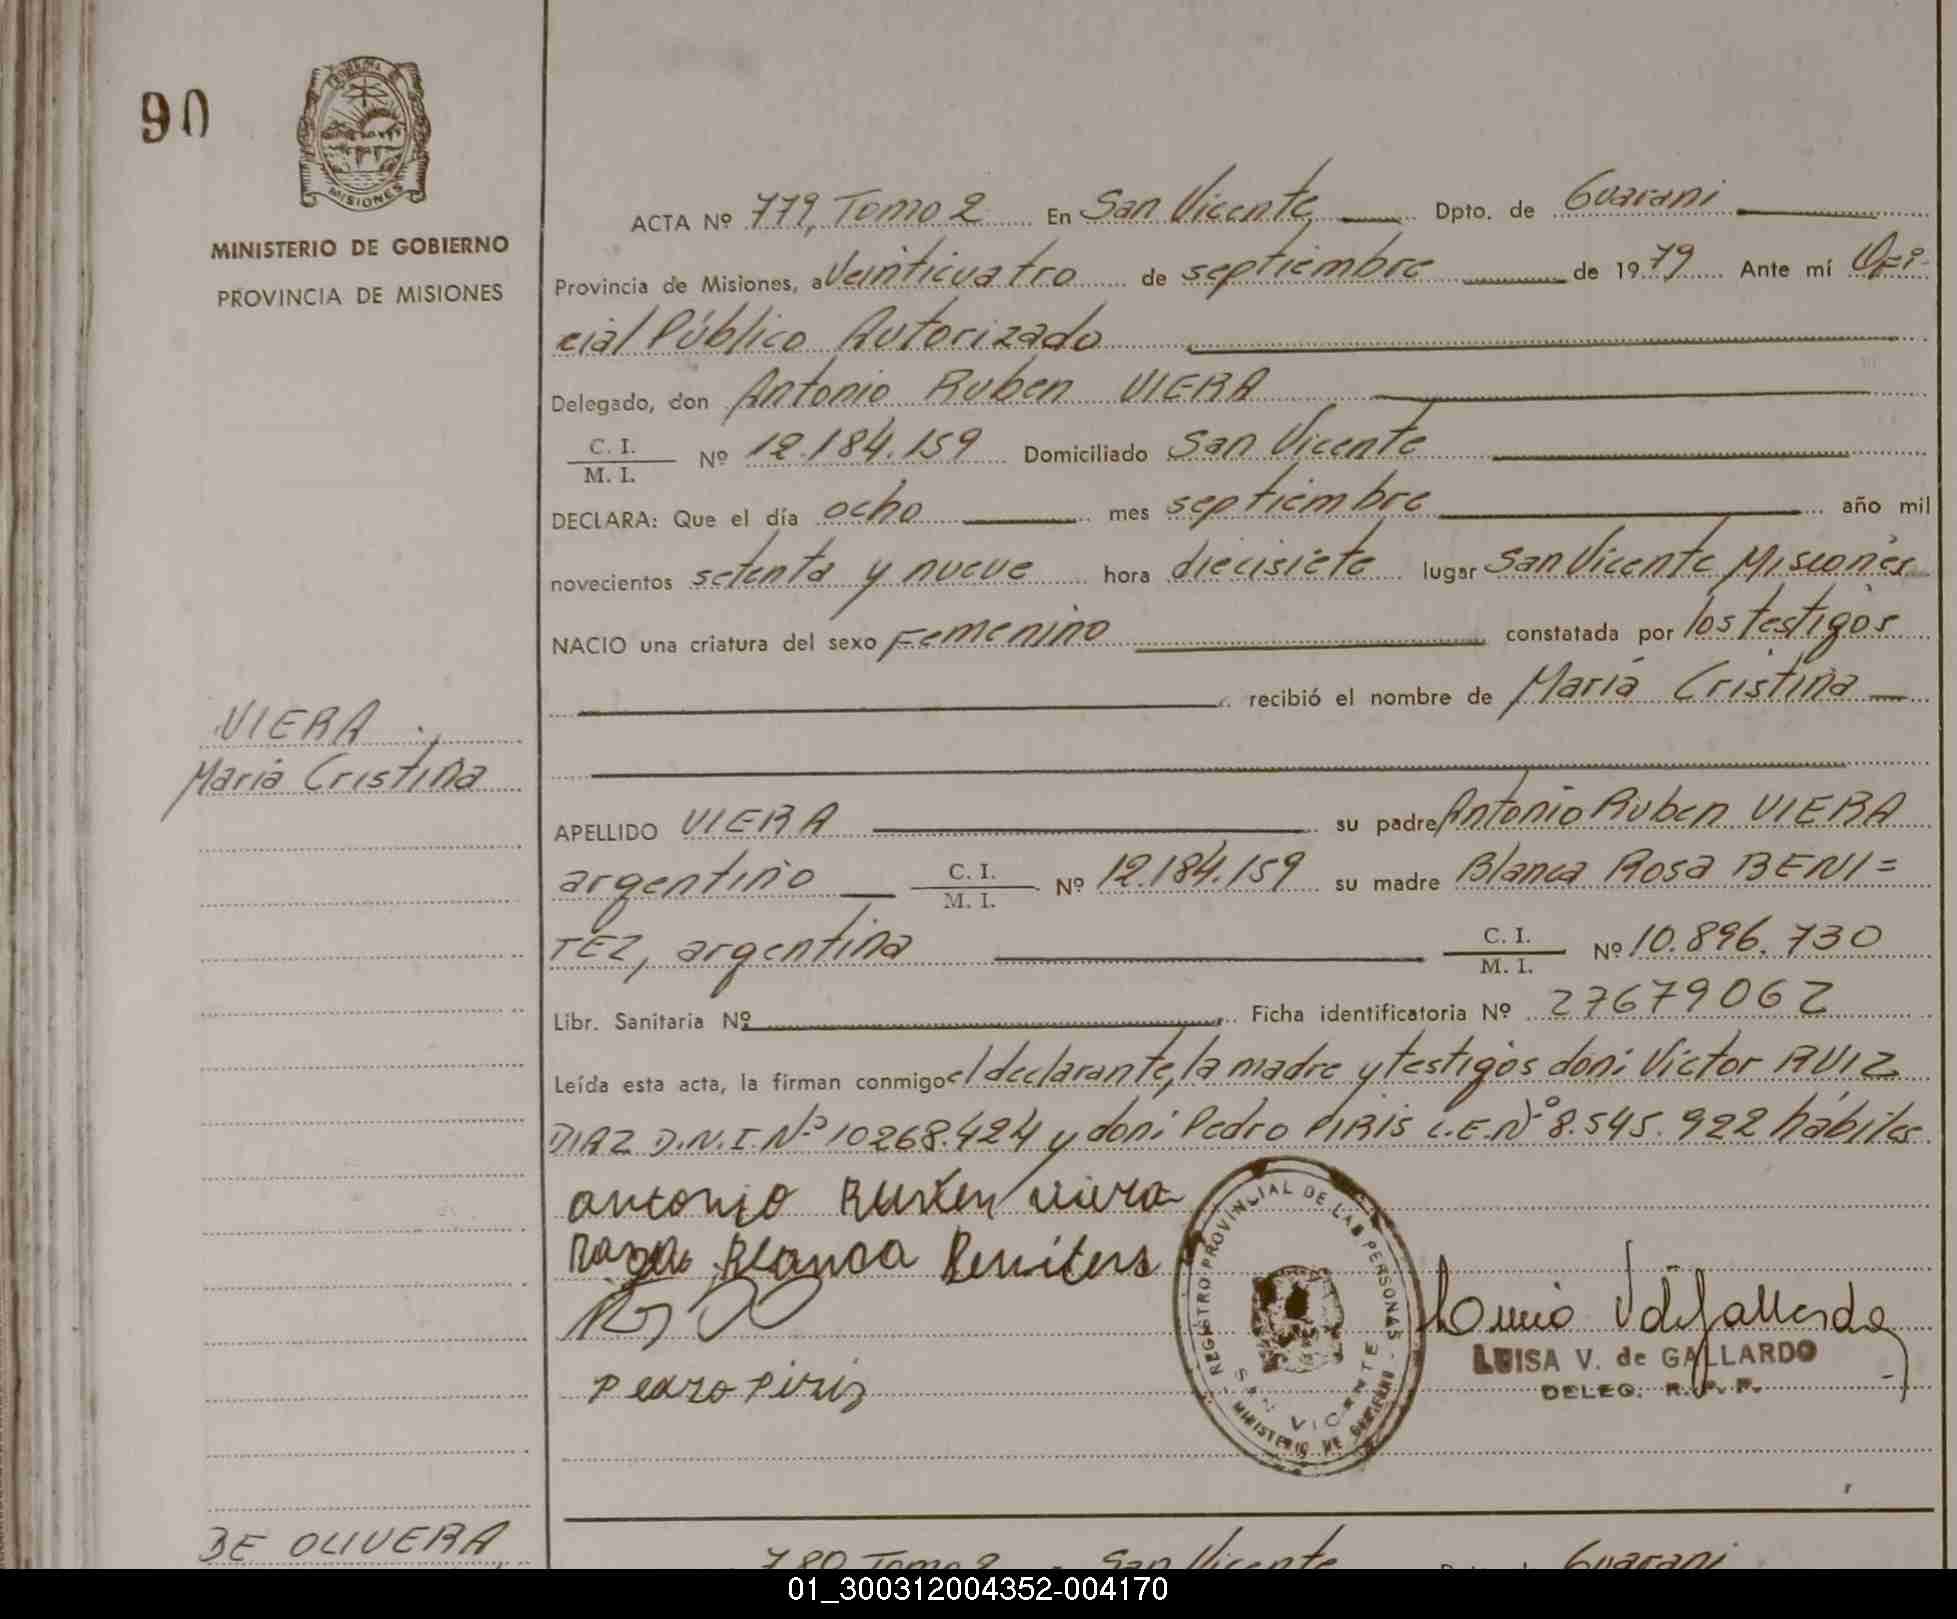 90
PROVINCIA DE
MISIONES
MINISTERIO DE GOBIERNO
PROVINCIA DE MISIONES
ACTA Nº 779, Tomo 2 En San Vicente Dpto. de Guarani
Provincia de Misiones, a Veinticuatro de septiembre de 1979 Ante mí Ofi-
cial Público Autorizado
Delegado, don Antonio Ruben VIERA
C. I.
M. I. Nº 12.184.159 Domiciliado San Vicente
DECLARA: Que el día ocho mes septiembre año mil
novecientos setenta y nueve hora diecisiete lugar San Vicente Misiones
NACIO una criatura del sexo Femenino constatada por los testigos
recibió el nombre de María Cristina
VIERA
María Cristina
APELLIDO VIERA su padre Antonio Ruben VIERA
argentino C. I.
M. I. Nº 12.184.159 su madre Blanca Rosa BENI=
TEZ, argentina C. I.
M. I. Nº 10.896.730
Libr. Sanitaria Nº Ficha identificatoria Nº 27679062
Leída esta acta, la firman conmigo el declarante, la madre y testigos don: Victor RUIZ
DIAZ D.N.I. Nº 10268.424 y don: Pedro PIRIS L.E. Nº 8.545.922 hábiles
antonio Ruben viera
Rosa Blanca Benites
Pedro Piriz
REGISTRO PROVINCIAL DE LAS PERSONAS
SAN VICENTE
MINISTERIO DE GOBIERNO
Luisa V de Gallardo
LUISA V. de GALLARDO
DELEG. R. P. P.
DE OLIVERA
780 Tomo 2 San Vicente Guarani
01_300312004352-004170